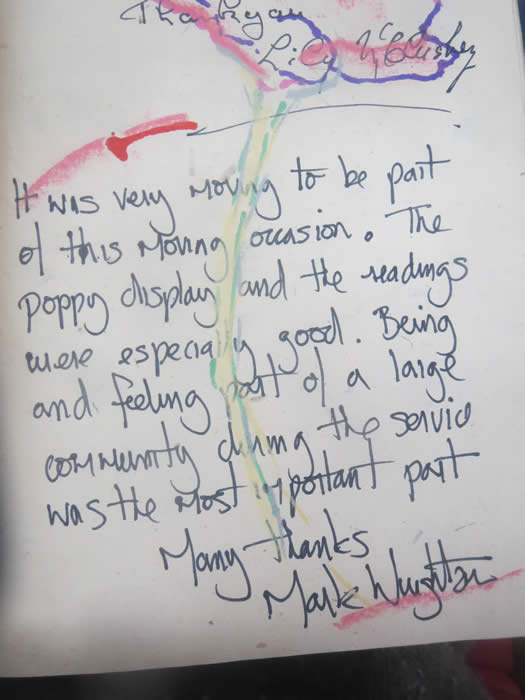 Thank you
Lily McCluskey
It was very moving to be part
of this moving occasion. The
poppy display and the readings
were especially good. Being
and feeling part of a large
community during the service
was the most important part
Many thanks
Mark